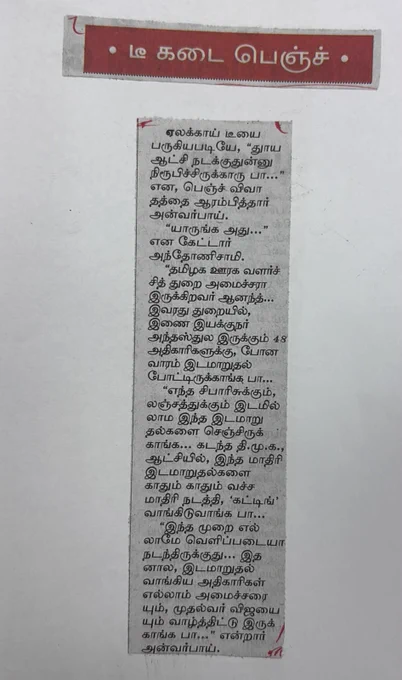 • டீ கடை பெஞ்ச் •
ஏலக்காய் டீயை
பருகியபடியே, “துாய
ஆட்சி நடக்குதுன்னு
நிரூபிச்சிருக்காரு பா...”
என, பெஞ்ச் விவா
தத்தை ஆரம்பித்தார்
அன்வர்பாய்.
“யாருங்க அது...”
என கேட்டார்
அந்தோணிசாமி.
“தமிழக ஊரக வளர்ச்
சித் துறை அமைச்சரா
இருக்கிறவர் ஆனந்த்...
இவரது துறையில்,
இணை இயக்குநர்
அந்தஸ்துல இருக்கும் 48
அதிகாரிகளுக்கு, போன
வாரம் இடமாறுதல்
போட்டிருக்காங்க பா...
“எந்த சிபாரிசுக்கும்,
லஞ்சத்துக்கும் இடமில்
லாம இந்த இடமாறு
தல்களை செஞ்சிருக்
காங்க... கடந்த தி.மு.க.,
ஆட்சியில், இந்த மாதிரி
இடமாறுதல்களை
காதும் காதும் வச்ச
மாதிரி நடத்தி, ‘கட்டிங்’
வாங்கிடுவாங்க பா...
“இந்த முறை எல்
லாமே வெளிப்படையா
நடந்திருக்குது... இத
னால, இடமாறுதல்
வாங்கிய அதிகாரிகள்
எல்லாம் அமைச்சரை
யும், முதல்வர் விஜயை
யும் வாழ்த்திட்டு இருக்
காங்க பா...” என்றார்
அன்வர்பாய்.